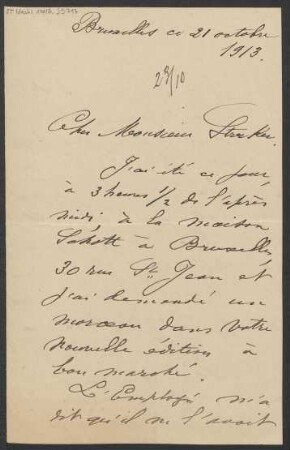 Bruxelles ce 21 octobre
1913.
23/10
Cher Monsieur Strecker.
J'ai été ce jour
à 3 heures 1/2 de l'après
midi à la maison
Schott à Bruxelles
30 rue St. Jean et
j'ai demandé un
morceau dans votre
nouvelle édition à
bon marché.
L'Employé m'a
dit qu'il ne l'avait